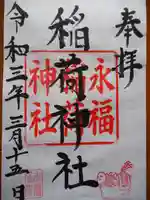 奉拝
稲荷神社
永福
稲荷
神社
令和三年三月十五日